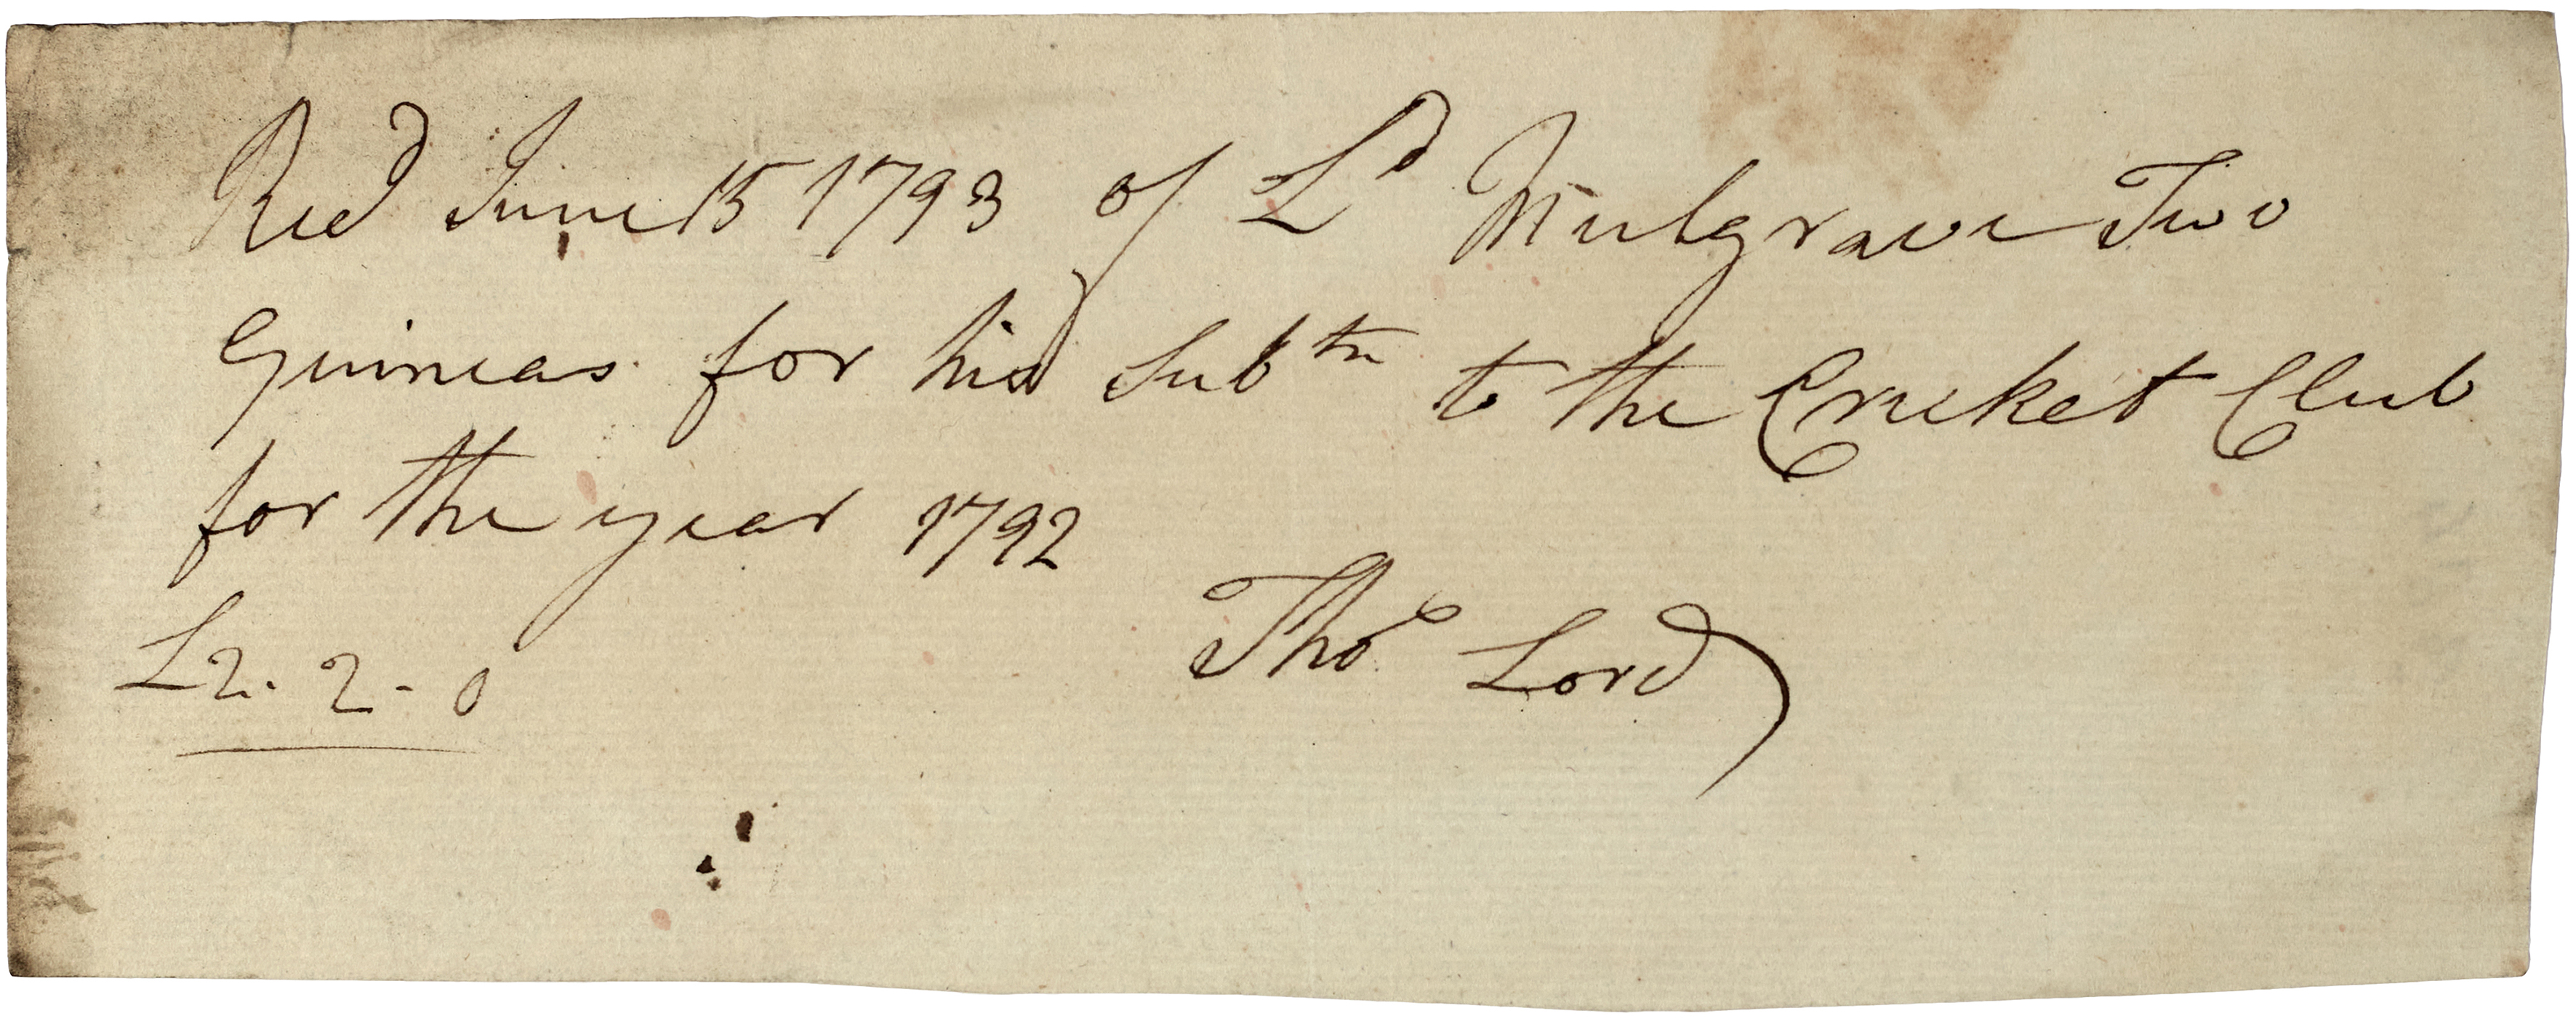 Recd June 15 1793 of Ld Mulgrave Two
Guineas for his Subtn to the Cricket Club
for the year 1792
Thos Lord
L2.2-0